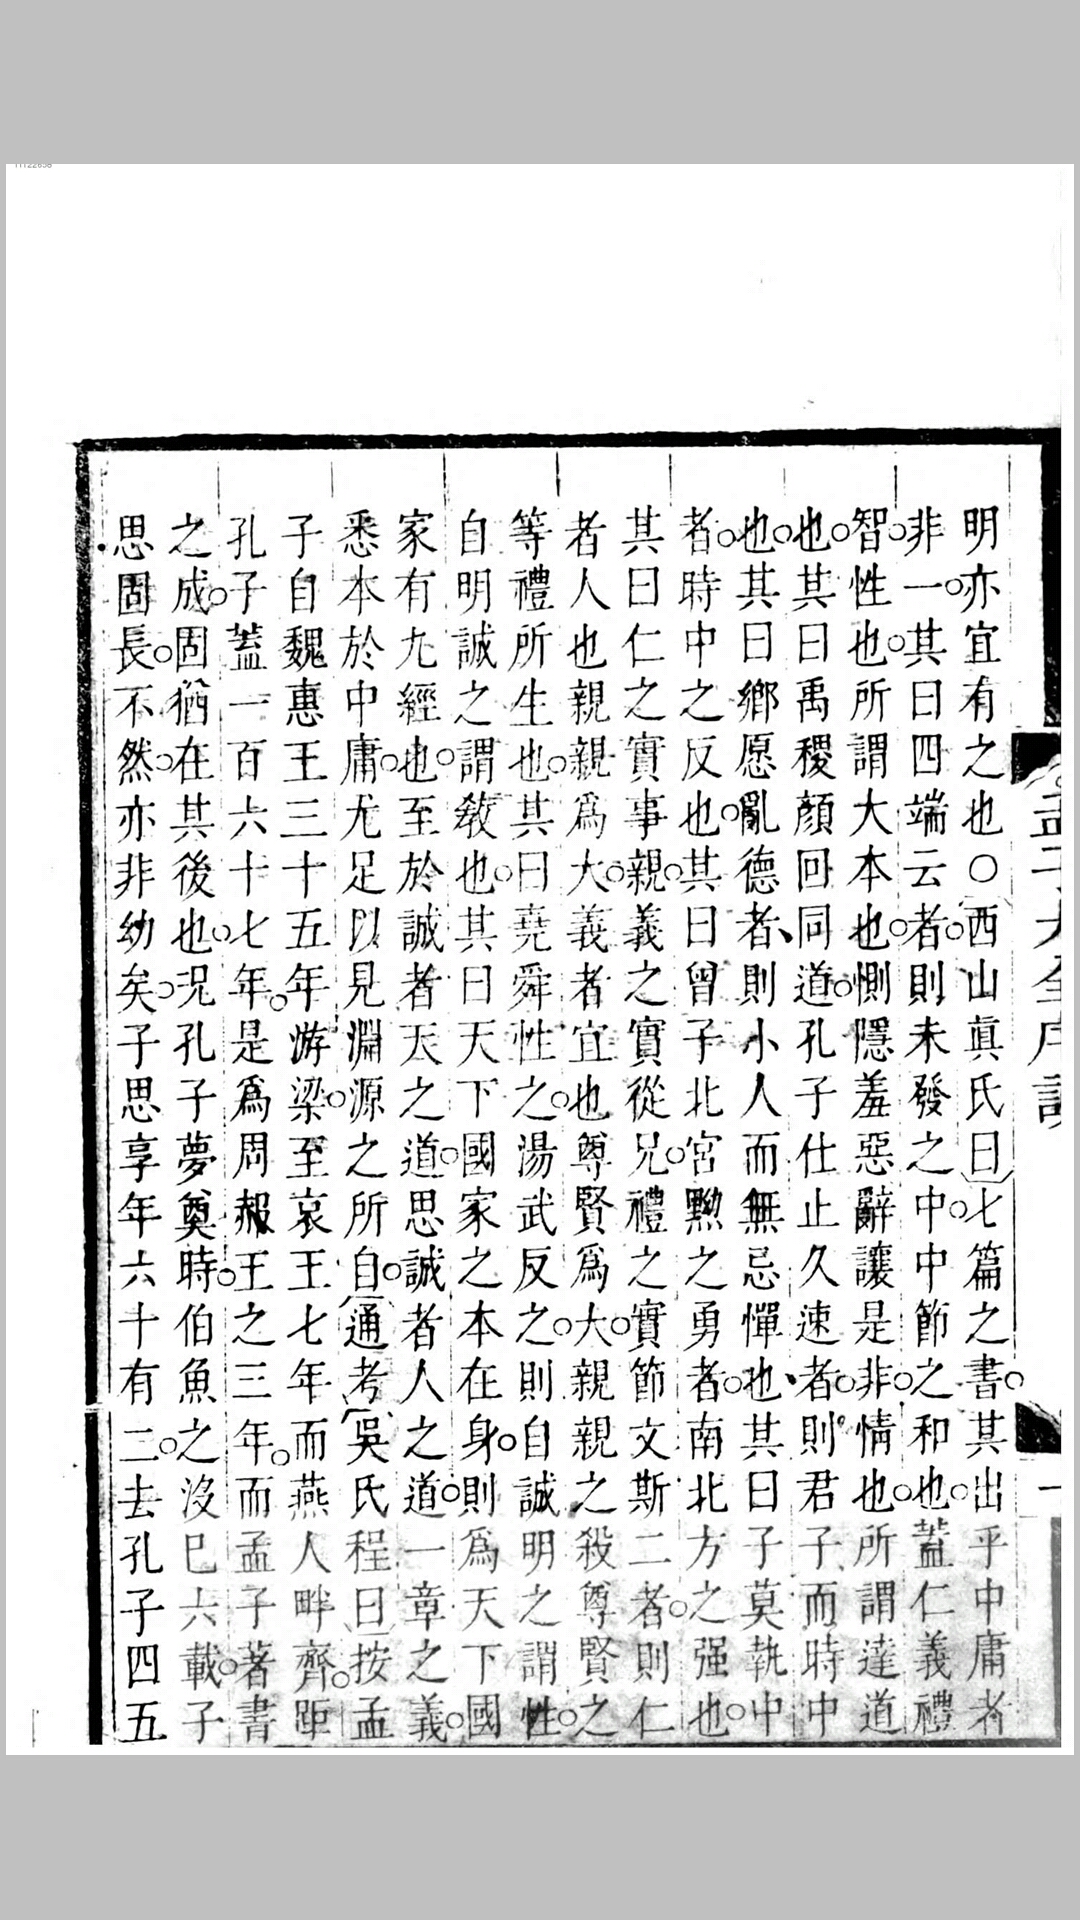 11122858
孟子大全序說
一
明亦宜有之也○西山眞氏曰七篇之書其出乎中庸者
非一其曰四端云者則未發之中中節之和也蓋仁義禮
智性也所謂大本也惻隱羞惡辭讓是非情也所謂達道
也其曰禹稷顏回同道孔子仕止久速者則君子而時中
也其曰鄉愿亂德者則小人而無忌憚也其曰子莫執中
者時中之反也其曰曾子北宮黝之勇者南北方之强也
其曰仁之實事親義之實從兄禮之實節文斯二者則仁
者人也親親爲大義者宜也尊賢爲大親親之殺尊賢之
等禮所生也其曰堯舜性之湯武反之則自誠明之謂性
自明誠之謂敎也其曰天下國家之本在身則爲天下國
家有九經也至於誠者天之道思誠者人之道一章之義
悉本於中庸尤足以見淵源之所自通考吳氏程曰按孟
子自魏惠王三十五年游梁至哀王七年而燕人畔齊距
孔子蓋一百六十七年是爲周赧王之三年而孟子著書
之成固猶在其後也况孔子夢奠時伯魚之沒巳六載子
思固長不然亦非幼矣子思享年六十有二去孔子四五